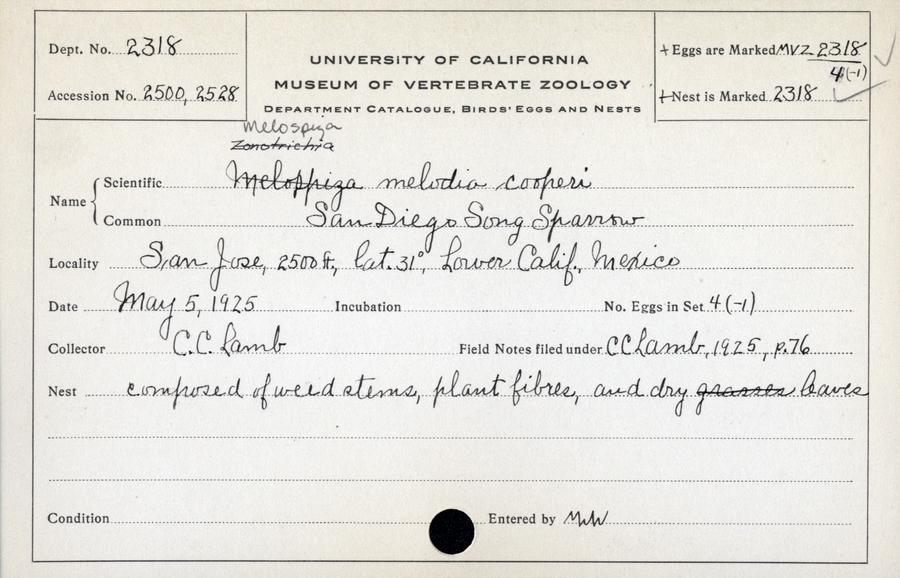 Dept. No. 2318
Accession No. 2500, 2528
UNIVERSITY OF CALIFORNIA
MUSEUM OF VERTEBRATE ZOOLOGY
DEPARTMENT CATALOGUE, BIRDS' EGGS AND NESTS
+ Eggs are Marked MVZ 2318
4(-1)
+ Nest is Marked 2318
Melospiza
Zonotrichia
Name
Scientific Melospiza melodia cooperi
Common San Diego Song Sparrow
Locality San Jose, 2500 ft., lat. 31°, Lower Calif., Mexico
Date May 5, 1925 Incubation No. Eggs in Set 4 (-1)
Collector C.C. Lamb Field Notes filed under CC Lamb, 1925, p. 76
Nest composed of weed stems, plant fibres, and dry grasses leaves
Condition Entered by